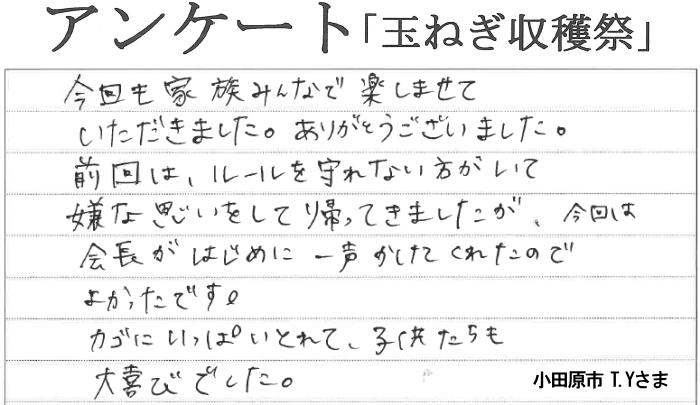 アンケート「玉ねぎ収穫祭」
今回も家族みんなで楽しませて
いただきました。ありがとうございました。
前回は、ルールを守れない方がいて
嫌な思いをして帰ってきましたが、今回は
会長がはじめに一声かけてくれたので
よかったです。
カゴにいっぱいとれて、子供たちも
大喜びでした。
小田原市 T.Yさま